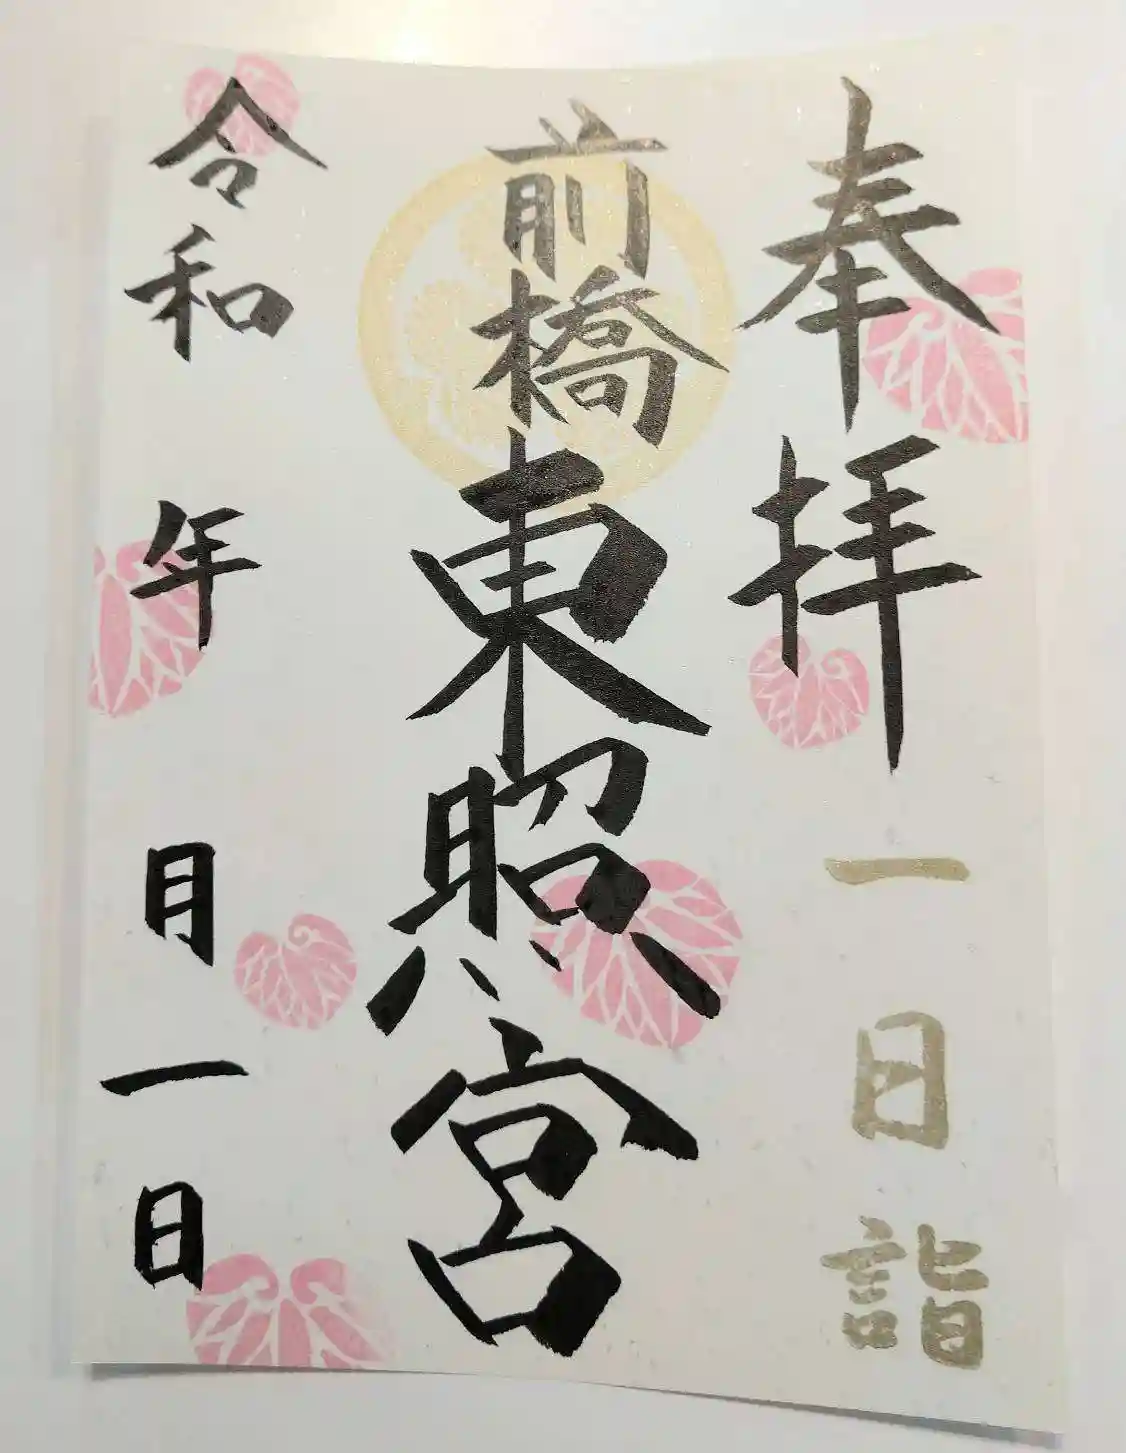 奉拝 一日詣
前橋東照宮
令和 年 月一日